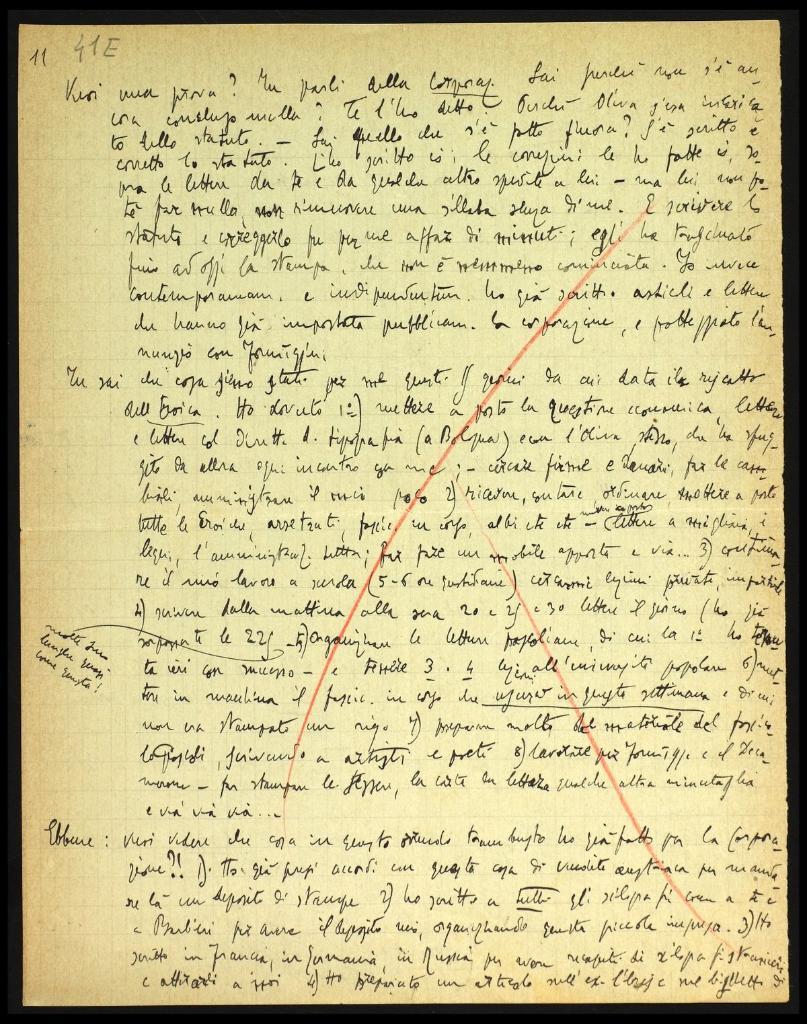 11 41E
Vuoi una prova? Tu parli della Corporaz. Sai perché non s'è an-
cora concluso nulla? Te l'ho detto. Perché Oliva s'era incarica-
to dello statuto. — Sai quello che s'è fatto finora? S'è scritto e
corretto lo statuto. L'ho scritto io; le correzioni le ho fatte io, so-
pra le lettere da te e da qualche altro spedite a lui — ma lui non po-
té far nulla, non rimuovere una sillaba senza di me. E scrivere lo
statuto e correggerlo fu per me affar di minuti; egli ha trascinato
fino ad oggi la stampa, che non è nemmeno cominciata. Io invece
contemporaneam. e indipendentem. ho già scritto articoli e lettere
che hanno già impostata pubblicam. la corporazione, e patteggiato l'an-
nunzio con Formiggini
Tu sai che cosa sieno stati per me questi giorni da cui data il riscatto
dell'Eroica. Ho dovuto 1º) mettere a posto la questione economica, lettere
e lettere col Dirett. d. tipografia (a Bologna) e con l'Oliva stesso, che ha sfug-
gito da allora ogni incontro con me; — cercare firme e denari, far le cam-
biali, amministrare il mio poco 2) ricevere, contare, ordinare, mettere a posto
tutte le Eroiche, arretrati, fascic. in corso, albi etc etc — lettere a migliaia, i
legni, l'amministraz. tutta; far fare un mobile apposta e via... 3) continua-
re il mio lavoro a scuola (5-6 ore quotidiane) lezioni private,
4) scrivere dalla mattina alla sera 20 e 25 e 30 lettere il giorno (ho già
sorpassate le 225 — 5) organizzare le letture pascoliane, di cui la 1ª ho tenu-
ta ieri con successo — e tenere 3. 4 lezioni all'università popolare 6) met-
molte sono
lunghe quasi
come questa!
tere in macchina il fascic. in corso che uscirà in questa settimana e di cui
non era stampato un rigo 7) preparare molto del materiale del fascic.
Pascoli, scrivendo a artisti e poeti 8) lavorare per Formigg. e il Deca-
merone — far stampare le tessere, la carta da lettere qualche altra minutaglia
e via via via...
Ebbene: vuoi vedere che cosa in questo tremendo trambusto ho già fatto per la Corpora-
zione?! 1). Ho già presi accordi con questa casa di vendite per manda-
re là un deposito di stampe 2) ho scritto a tutti gli xilografi come a te e
a Barbieri per avere il deposito mio, organizzando questa piccola impresa. 3) Ho
scritto in Francia, in Germania, in Russia per avere recapiti di xilografi stranieri
e attirarli a noi 4) Ho preparato un articolo sull'ex-libris e sul biglietto di